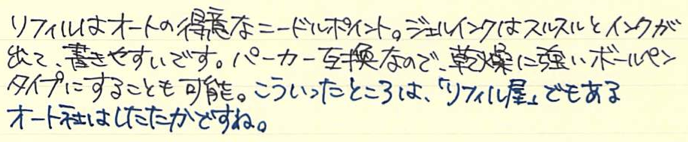 リフィルはオートの得意なニードルポイント。ジェルインクはスルスルとインクが
出て、書きやすいです。パーカー互換なので、乾燥に強いボールペン
タイプにすることも可能。こういったところは、「リフィル屋」でもある
オート社はしたたかですね。